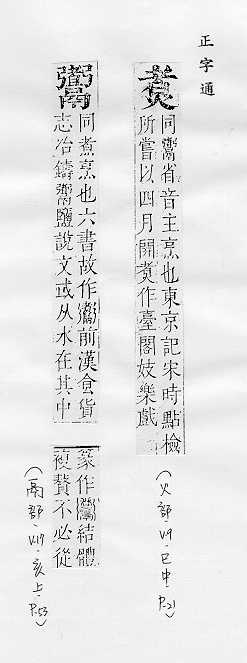 正字通
煑
同鬻省音主烹也東京記宋時點檢
所嘗以四月開煑作臺閣妓樂戲
(火部.V9.巳中.P.21)
同煮烹也六書故作前漢食貨
志冶鑄鹽說文或从水在其中
篆作結體
複贅不必從
(鬲部.V17.亥上.P.53)